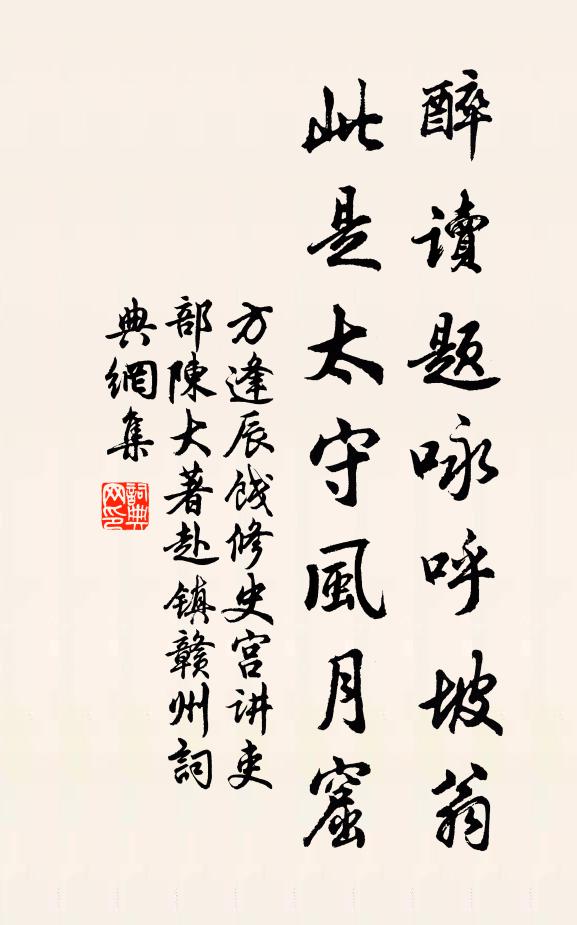 醉讀題咏呼坡翁
此是太守風月窟
方逢辰餞修史宫讲吏
部陳大著赴镇赣州詞
典網集
詞典
网印